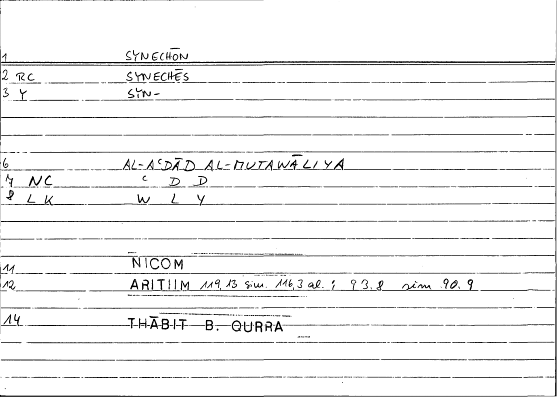 1 SYNECHŌN
2 RC SYNECHĒS
3 Y SYN-
6 AL-AʿDĀD AL-MUTAWĀLIYA
7 NC ʿ D D
8 LK W L Y
11 NICOM
12 ARITIIM 119,13 sim. 116,3 al.; 93.8 sim 90.9
14 THĀBIT B. QURRA